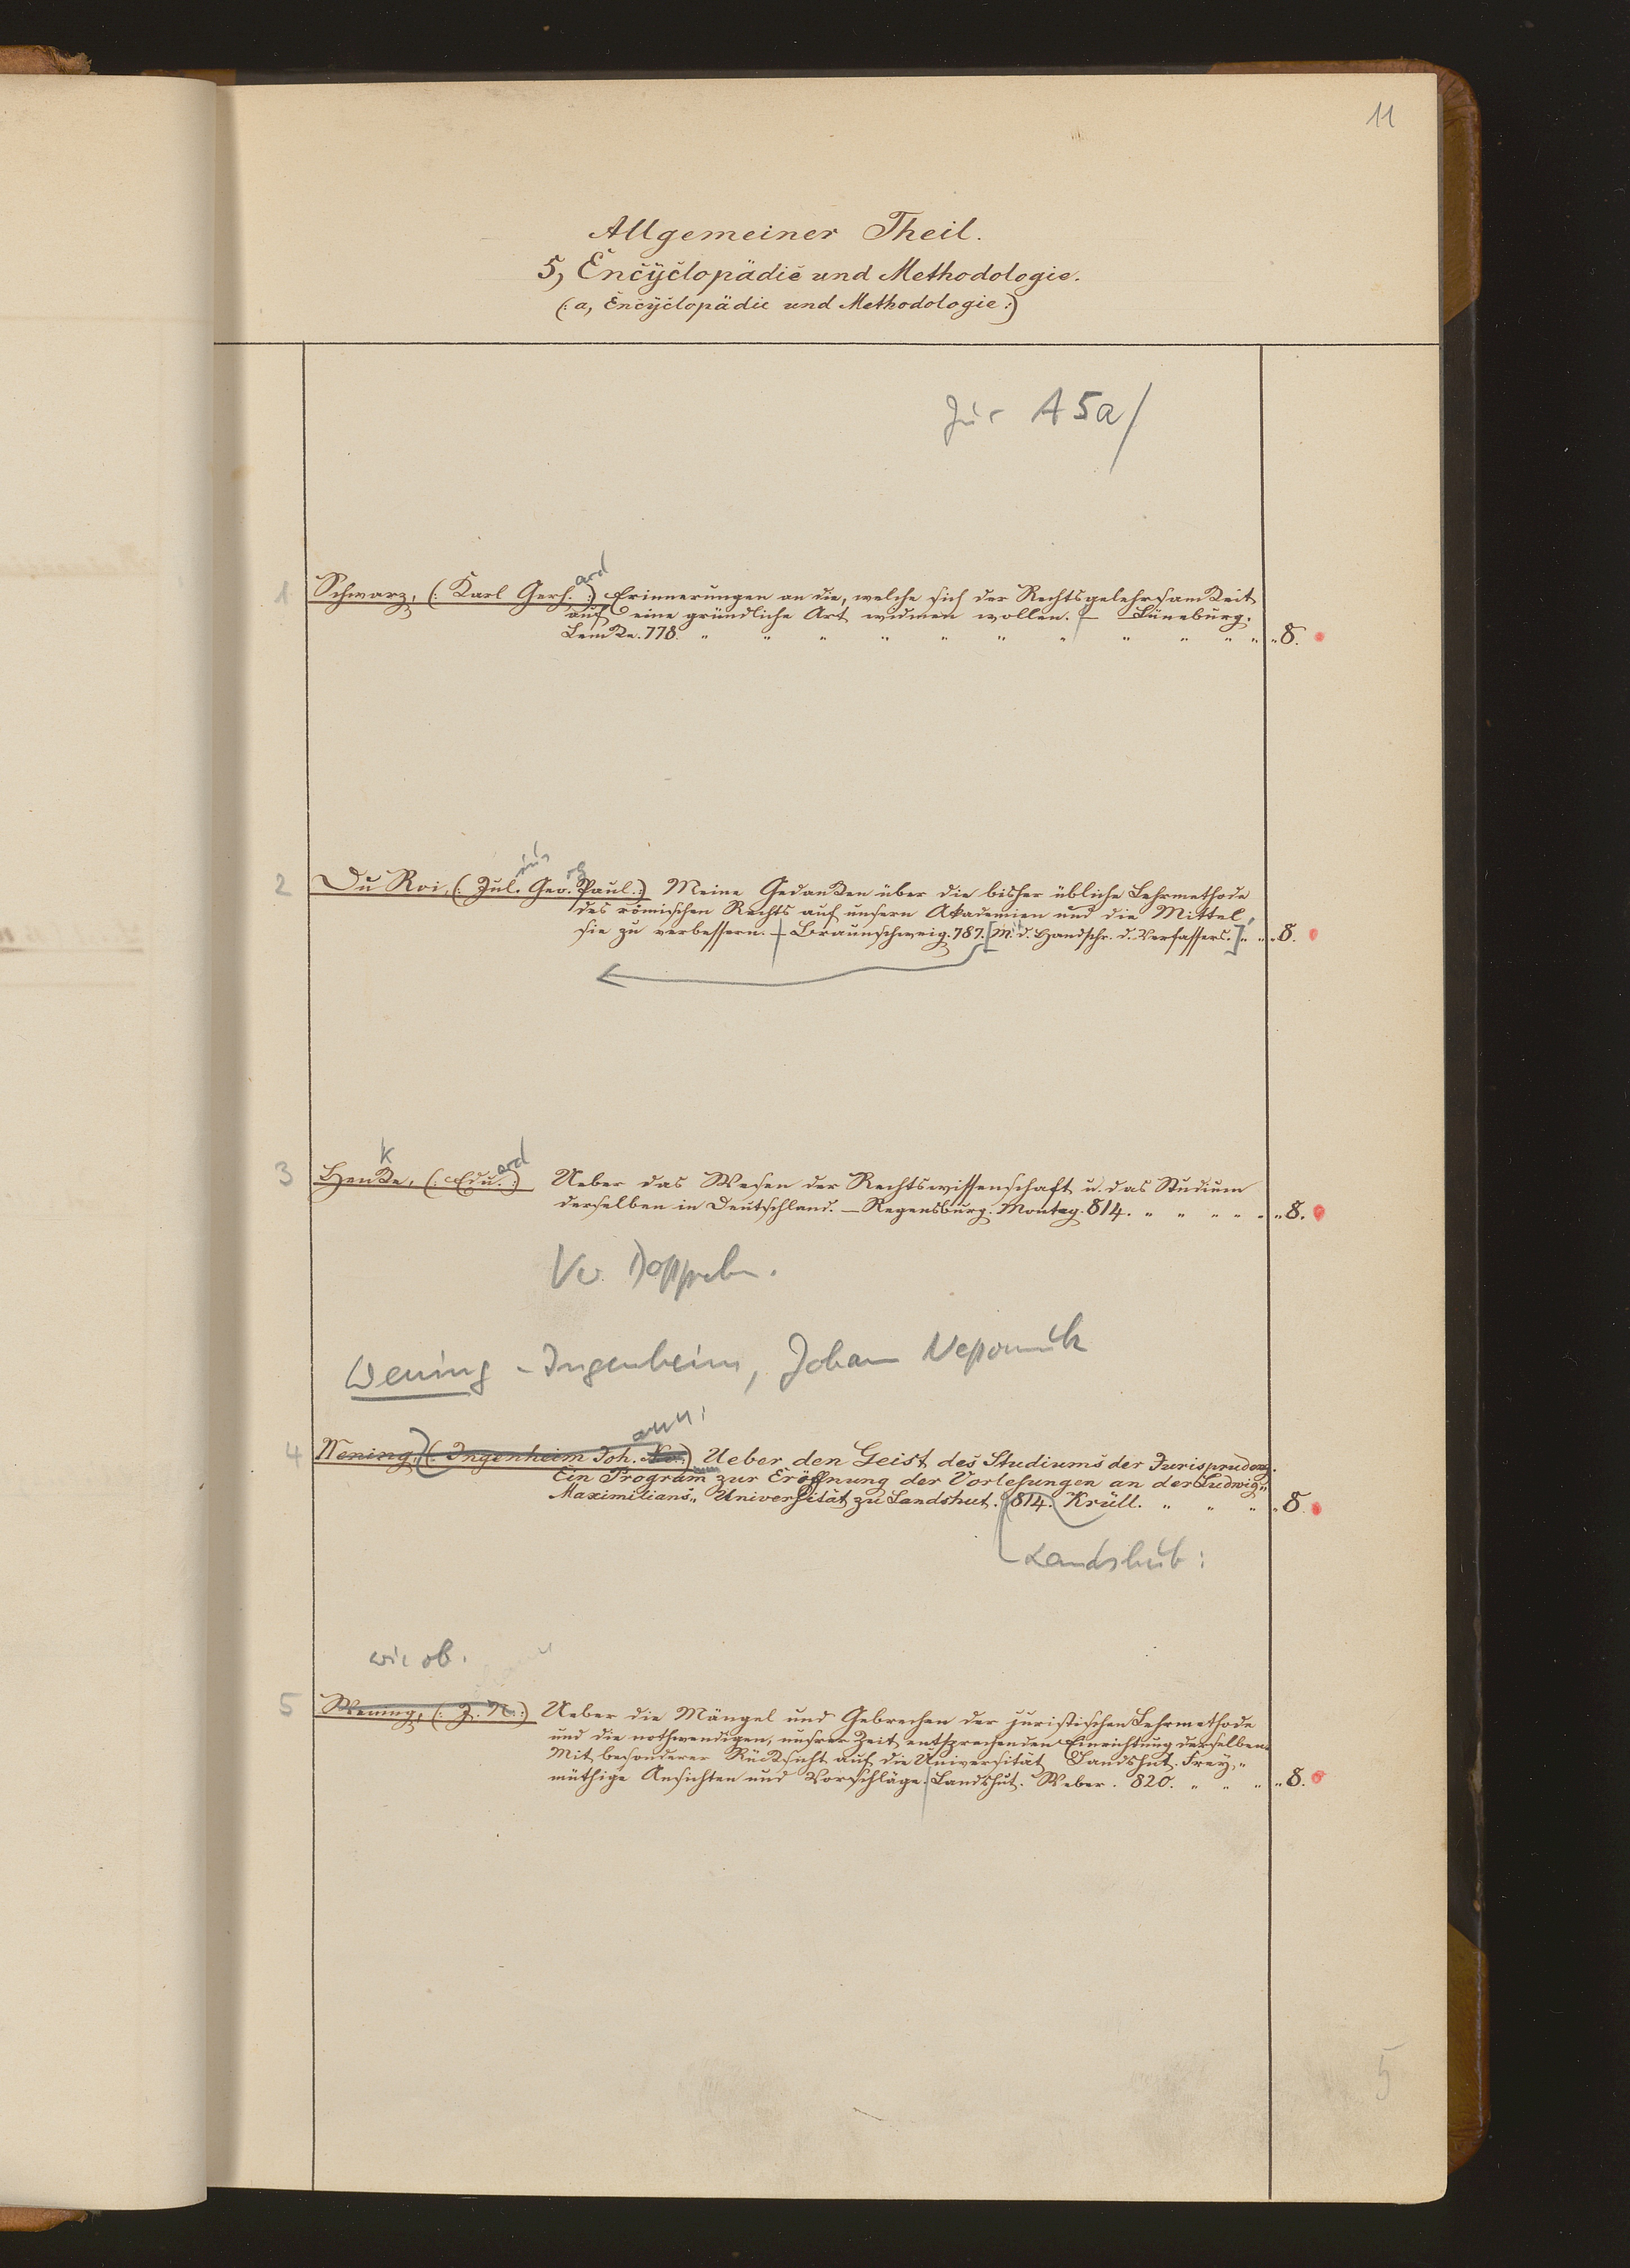 11
Allgemeiner Theil.
5, Encyclopädie und Methodologie.
(: a, Encyclopädie und Methodologie :)
Jur A 5a/
1 Schwarz, (: Karl Gerh. :) ard Erinnerungen an die, welche sich der Rechtsgelehrsamkeit
auf eine gründliche Art widmen wollen. — Lüneburg.
Lemke. 778. " " " " " " " " " " " " 8.
2 Du Roi, (: Jul. ius Geo. rg Paul. :) Meine Gedanken über die bisher übliche Lehrmethode
des römischen Rechts auf unsern Akademien und die Mittel,
sie zu verbessern. — Braunschweig. 787. [M. d. Handschr. d. Verfassers.] " " " 8.
3 Henke, k (: Edu. :) ard Ueber das Wesen der Rechtswissenschaft u. das Studium
derselben in Deutschland. — Regensburg. Montag. 814. " " " " " " 8.
Wening-Ingenheim, Johann Nepomuk
ann:
4 Wening, (: Ingenheim Joh. Ne. :) Ueber den Geist des Studiums der Jurisprudenz.
Ein Programm zur Eröffnung der Vorlesungen an der Ludwig"
Maximilians" Universität zu Landshut. 814. Krüll. " " " " 8.
Landshut:
wie ob.
5 Wening, (: J. N. :) Ueber die Mängel und Gebrechen der juristischen Lehrmethode
und die nothwendigen, unsrer Zeit entsprechenden Einrichtung derselben.
Mit besonderer Rücksicht auf die Universität Landshut. Frey,"
müthige Ansichten und Vorschläge. Landshut. Weber. 820. " " " " 8.
5